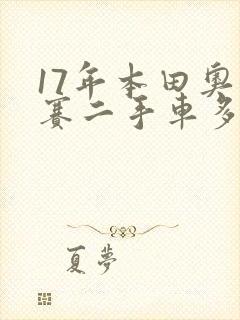 17年本田奥
赛二手車多
夏夢